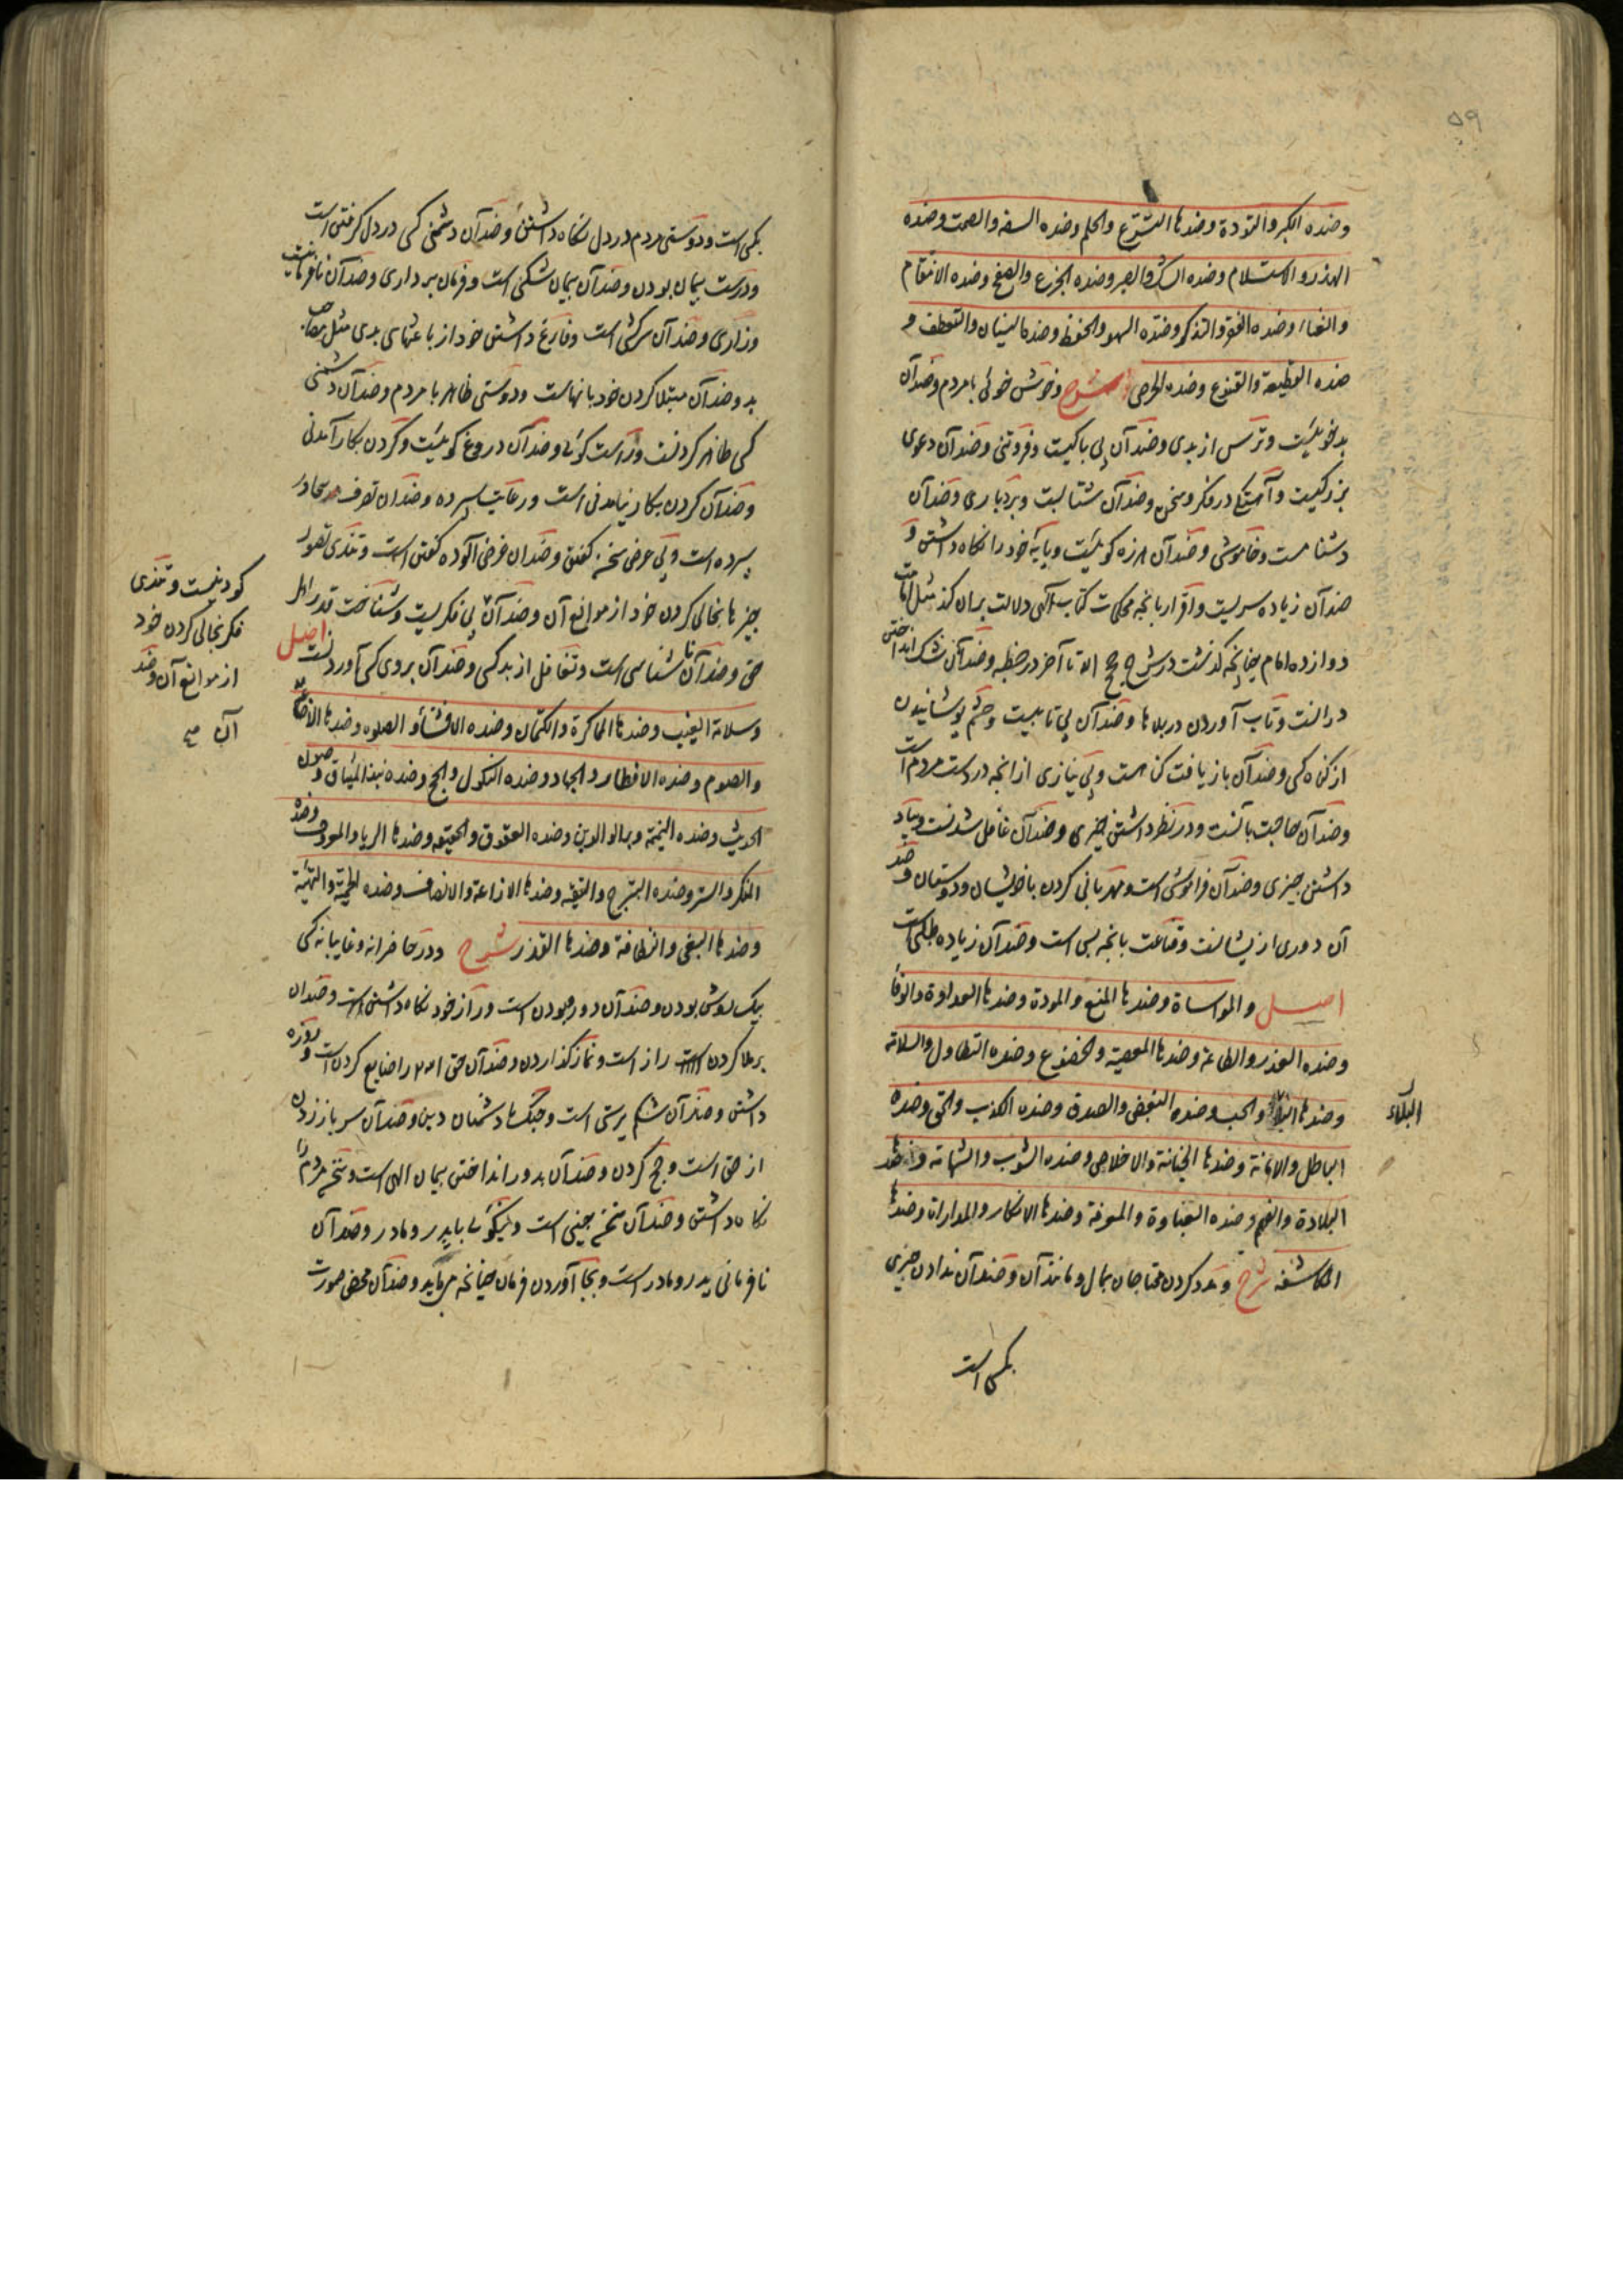 ۵۹
وضده الکبر والتودة وضدها التسرع والحلم وضده السفه والصمت وضده
الهذر والاستسلام وضده الشک والصبر وضده الجزع والصفح وضده الانتقام
والغناء وضده الفقر والتذکر وضده السهو والحفظ وضده النسیان والتعطف و
ضده القطیعة والقنوع وضده الحرص شرح وخوش خوئی با مردم وضد آن
بدخوییست وترس از بدی وضد آن بی باکیست وفروتنی وضد آن دعوی
بزرگیست وآهستگی در فکر وسخن وضد آن شتابست وبردباری وضد آن
دشنامست وخاموشی وضد آن هرزه گوییست وپایه خود را نگاه داشتن و
ضد آن زیاده سریست واقرار بانچه محکمات کتاب الهی دلالت بران کند مثل امامت
دوازده امام چنانچه گذشت در شرح الحج الا تا آخر در خطبه وضد آن شک انداختن
درانست وتاب آوردن در بلاها وضد آن بی تابیست وچشم پوشانیدن
از گناه کسی وضد آن بازیافت گناهست وبی نیازی از آنچه در دست مردم است
وضد آن حاجت بآنست ودر نظر داشتن چیزی وضد آن غافل شدنست وبیاد
داشتن چیزی وضد آن فراموشی است ومهربانی کردن با خویشان ودوستان وضد
آن دوری از یشانست وقناعت بانچه بس است وضد آن زیاده طلبی است
اصل والمواساة وضدها المنع والمودة وضدها العداوة والوفاء
وضده الغدر والطاعة وضدها المعصیة والخضوع وضده التطاول والسلامة
وضدها البلاء والحب وضده البغض والصدق وضده الکذب والحق وضده
الباطل والامانة وضدها الخیانة والاخلاص وضده الشوب والشهامة وضدها
البلادة والفهم وضده الغباوة والمعرفة وضدها الانکار والمداراة وضدها
المکاشفة شرح ومدد کردن محتاجان بمال ومانند آن وضد آن ندادن چیزی
البلاء
بکسی است
بکسی است ودوستی مردم در دل نگاه داشتن وضد آن دشمنی کسی در دل گرفتن است
ودرست پیمان بودن وضد آن پیمان شکنی است وفرمان برداری وضد آن نافرمانیست
وزاری وضد آن سرکشی است وفارغ داشتن خود از باعثهای بدی مثل مصاحب
بد وضد آن مبتلا کردن خود بانهاست ودوستی ظاهر با مردم وضد آن دشمنی
کسی ظاهر کردنست وراست گوئی وضد آن دروغ گوییست وکردن بکار آمدنی
وضد آن کردن بکار نیامدنی است ورعایت سپرده وضد آن تصرف در
سپرده است وبی غرض سخن گفتن وضد آن غرض آلوده گفتن است وتندی تصور
چیزها بخالی کردن خود از موانع آن وضد آن بی فکریست وشناخت قدر اهل
حق وضد آن ناشناسی است وتغافل از بد کسی وضد آن بروی کسی آوردنست اصل
وسلامة الغیب وضدها المماکرة والکتمان وضده الافشاء والصلوة وضدها الاضاعة
والصوم وضده الافطار والجهاد وضده النکول والحج وضده نبذ المیثاق وصون
الحدیث وضده النمیمة وبر الوالدین وضده العقوق والحقیقة وضدها الریاء والمعروف وضده
المنکر والستر وضده التبرج والتقیة وضدها الاذاعة والانصاف وضده الحمیة والتهیئة
وضدها البغی والنظافة وضدها القذر شرح ودر حاضرانه وغایبانه کسی
بیک روش بودن وضد آن دورو بودن است وراز خود نگاه داشتن است وضد آن
برملا کردن راز است ونماز گذاردن وضد آن حق آن را ضایع کردن است وروزه
داشتن وضد آن شکم پرستی است وجنگ با دشمنان دین وضد آن سرباز زدن
از حق است وحج کردن وضد آن بدور انداختن پیمان الهی است وسخن مردم را
نگاه داشتن وضد آن سخن چینی است ونیکوئی با پدر ومادر وضد آن
نافرمانی پدر ومادر است وبجا آوردن فرمان چنانچه می باید وضد آن محض صورت
کودنیست وتندی
فکر بخالی کردن خود
از موانع آن وضد
آن